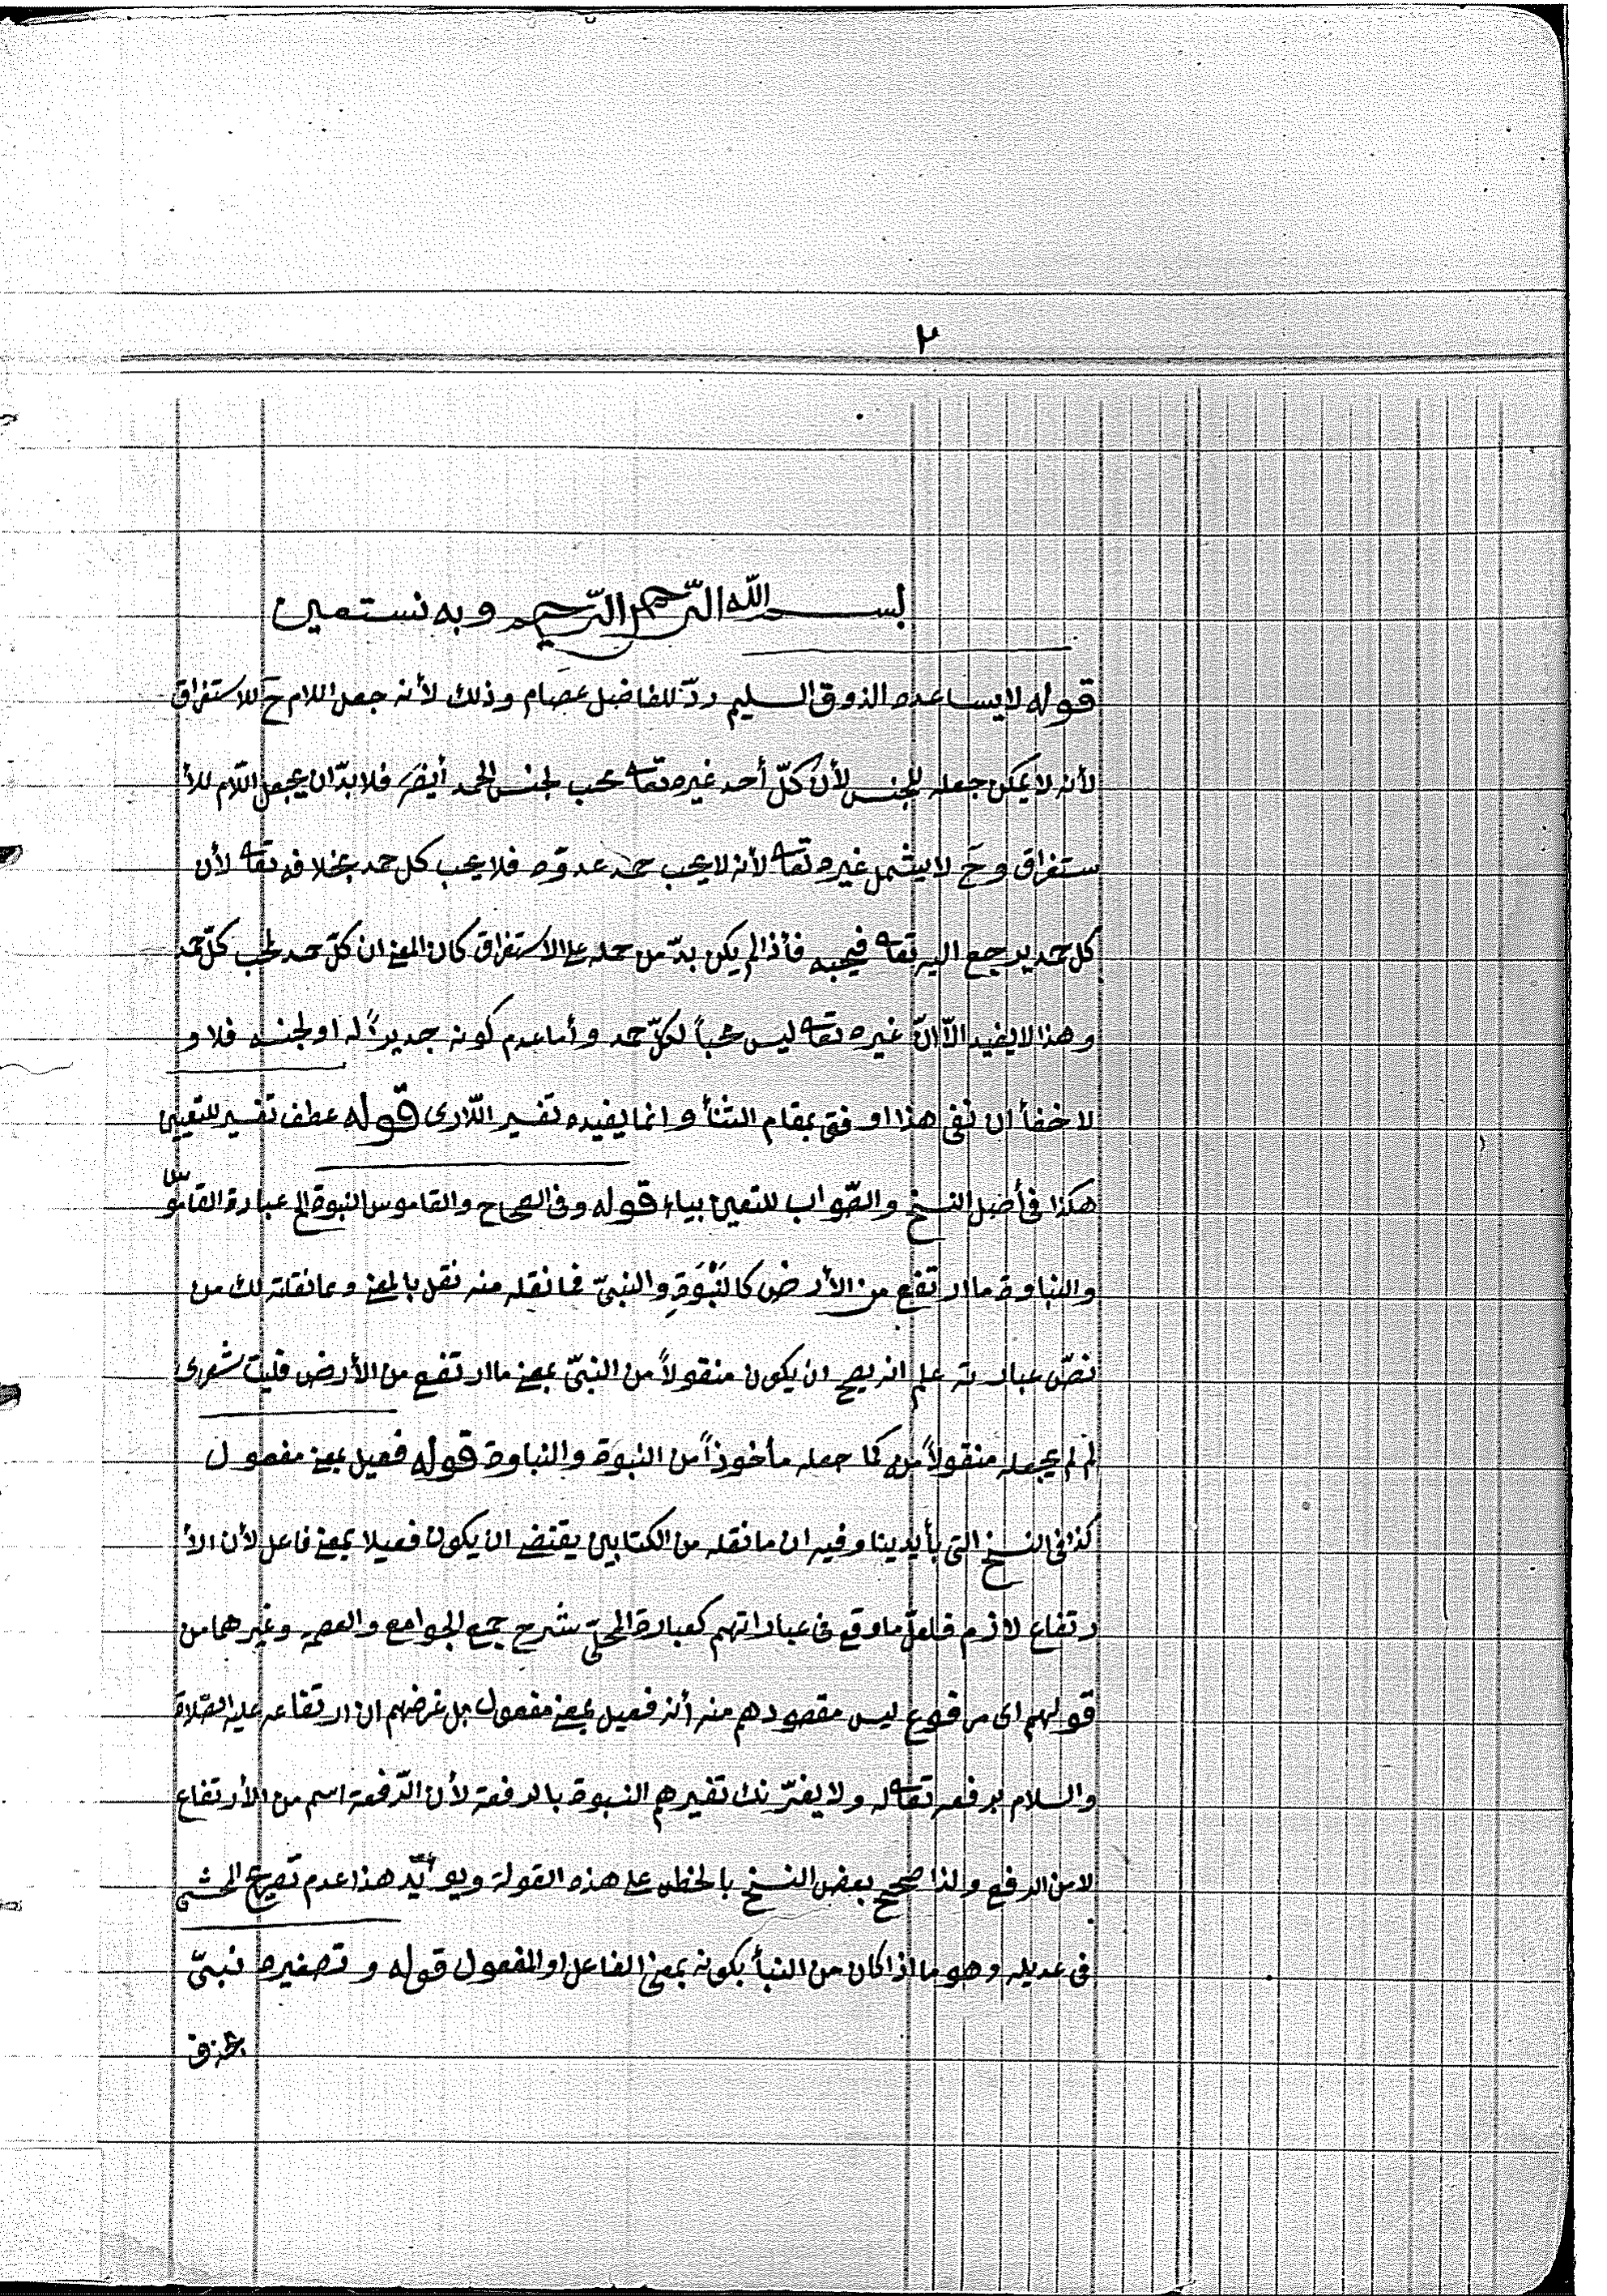 ٣
بســـم الله الرّحمن الرّحيم وبه نستعين
قوله لا يساعده الذوق السليم ردّ للفاضل عصام وذلك لأنه جعل اللام ح للاستغراق
لأنه لا يمكن جعله للجنس لأن كلّ أحد غيره تعا محب لجنس الحمد أيضا فلا بدّ ان يجعل اللّام للأ
ستغراق وح لا يشمل غيره تعا لأنه لا يحب حمد عدوّه فلا يحب كل حمد بخلافه تعا لأن
كل حمد يرجع اليه تعا فيحبه فأذا لم يكن بدّ من حمله على الاستغراق كان المعنى ان كلّ حمد لمحب كلّ حمد
وهذا لا يفيد الّا انّ غيره تعا ليس محباً لكلّ حمد وأما عدم كونه جديراً له او لجنسه فلا و
لا خفأ ان نفى هذا اوفق بمقام الثنأ وانما يفيده تفسير اللّارى قوله عطف تفسير للتعيين
هكذا فى أصل النسخ والصّواب للتعين بياء قوله وفى الصحاح والقاموس النبوة الخ عبارة القاموس
والنباوة ما ارتفع من الأرض كالنَبْوَةِ والنبىّ فما نقله منه نقل بالمعنى ومما نقلته لك من
نصّ عبارته علم انه يصح ان يكون منقولاً من النبىّ بمعنى ما ارتفع من الأرض فليت شعرى
لم لم يجعله منقولاً منه كما جعله مأخوذاً من النبوة والنباوة قوله فعيل بمعنى مفعول
كذا فى النسخ التى بأيدينا وفيه ان ما نقله من الكتابين يقتضى ان يكون فعيلا بمعنى فاعل لأن الأ
رتفاع لازم فلعلّ ما وقع فى عباراتهم كعبارة المحلّى شرح جمع الجوامع والعصمة وغيرهما من
قولهم اى مرفوع ليس مقصودهم منه أنه فعيل بمعنى مفعول بل غرضهم ان ارتفاعه عليه الصّلاة
والسلام برفعه تعا له ولا يغرّنك تفسيرهم النبوة بالرفعة لأن الرّفعة اسم من الأرتفاع
لا من الرفع ولذا صحح بعض النسخ بالخط على هذه القولة ويوأيّد هذا عدم تصريح المحشى
فى عديله وهو ما اذا كان من النبأ بكونه بمعنى الفاعل او المفعول قوله وتصغيره نبىّ
بحذف